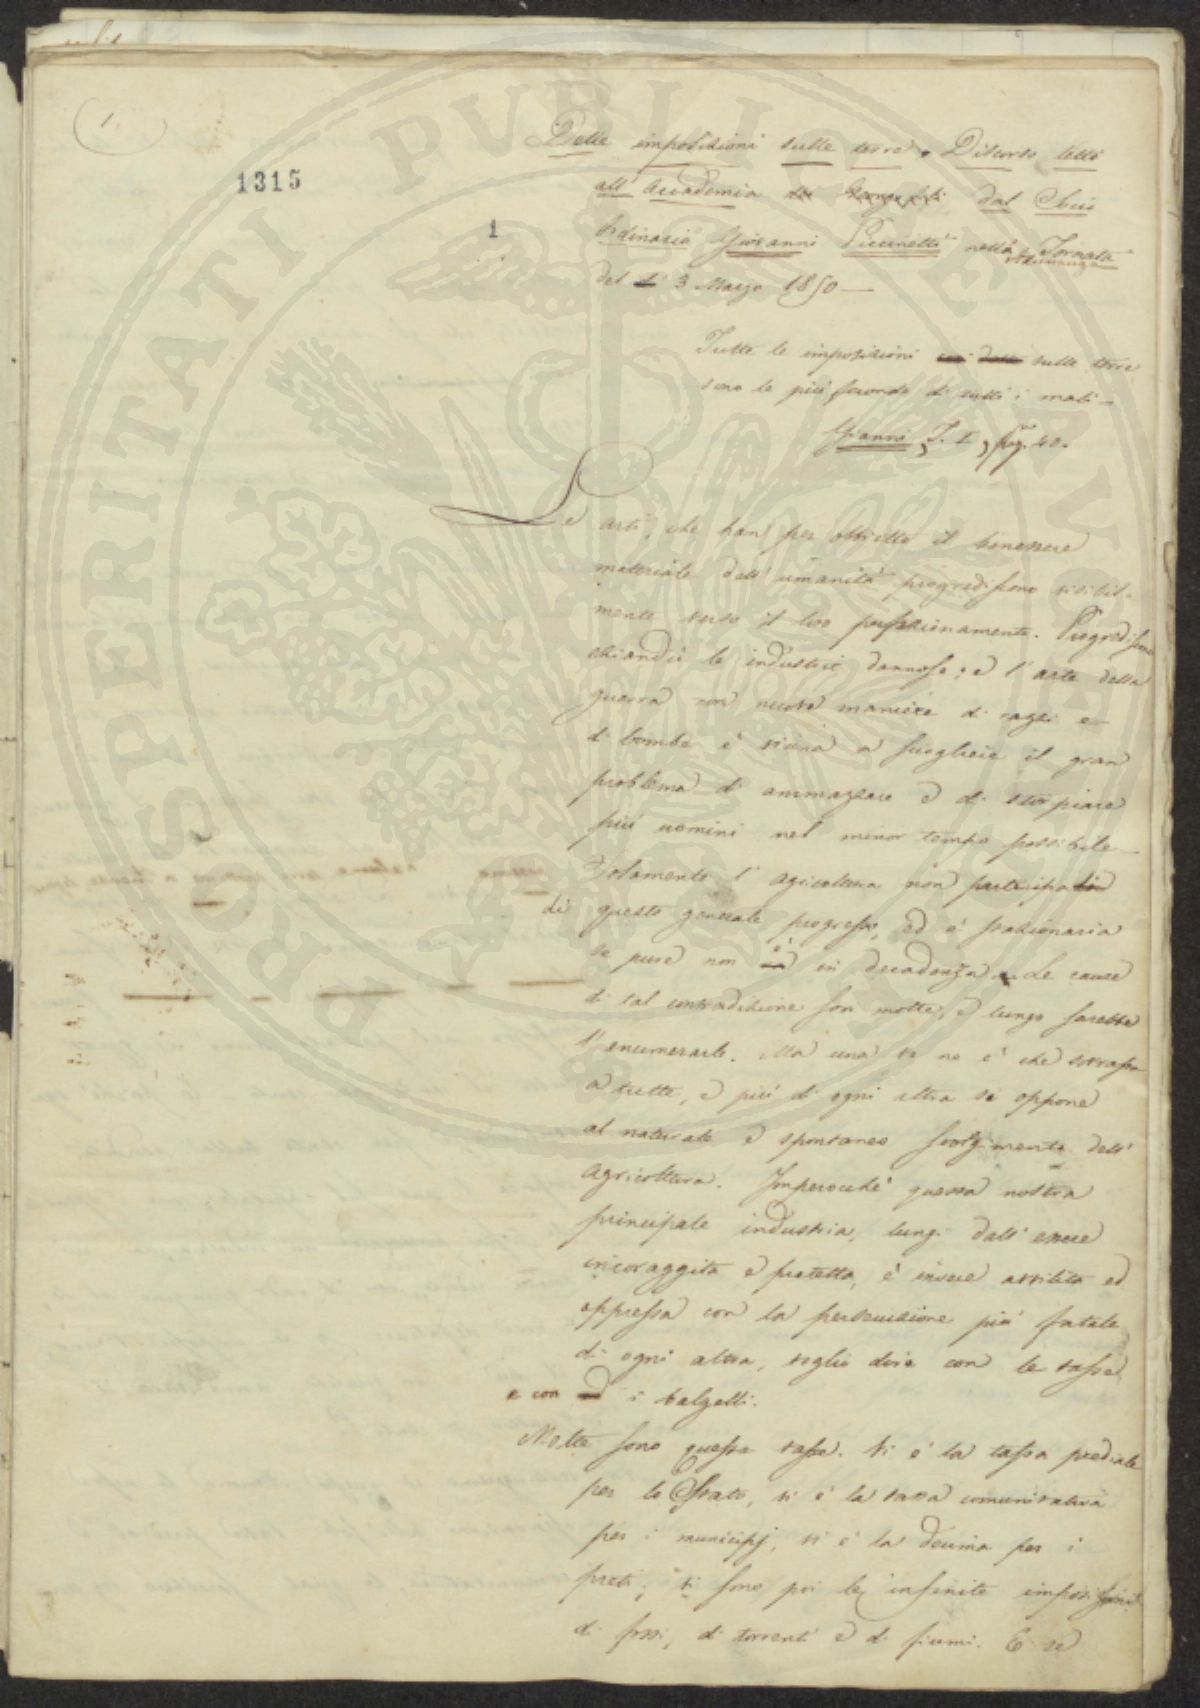 1.
1315
1
PROSPERITATI PVBLICAE AVGENDAE
Delle imposizioni sulle terre. Discorso letto
all'Accademia dei Georgofili dal Socio
Ordinario Giovanni Piccinetti nella Tornata
Adunanza
del 3 Marzo 1850 —
Tutte le imposizioni sulle terre
sono le più feconde di tutti i mali —
Gianni, T. I, pag. 40.
Le arti, che han per obbietto il benessere
materiale dell'umanità progrediscono visibil-
mente verso il loro perfezionamento. Progrediscono
eziandio le industrie dannose; e l'arte della
guerra con nuove maniere di razzi e
di bombe è vicina a sciogliere il gran
problema di ammazzare e di storpiare
più uomini nel minor tempo possibile —
Solamente l'agricoltura non partecipa
di questo generale progresso, ed è stazionaria
se pure non è in decadenza. Le cause
di tal contradizione son molte, e lungo sarebbe
l'enumerarle. Ma una ve ne è che sovrasta
a tutte, e più di ogni altra si oppone
al naturale e spontaneo svolgimento dell'
agricoltura. Imperocchè questa nostra
principale industria, lungi dall'essere
incoraggita e protetta, è invece avvilita ed
oppressa con la persecuzione più fatale
di ogni altra, voglio dire con le tasse
e con i balzelli.
Molte sono queste tasse. Vi è la tassa prediale
per lo Stato, vi è la tassa comunitativa
per i municipj, vi è la decima per i
preti; vi sono poi le infinite imposizioni
di fossi, di torrenti e di fiumi. E se